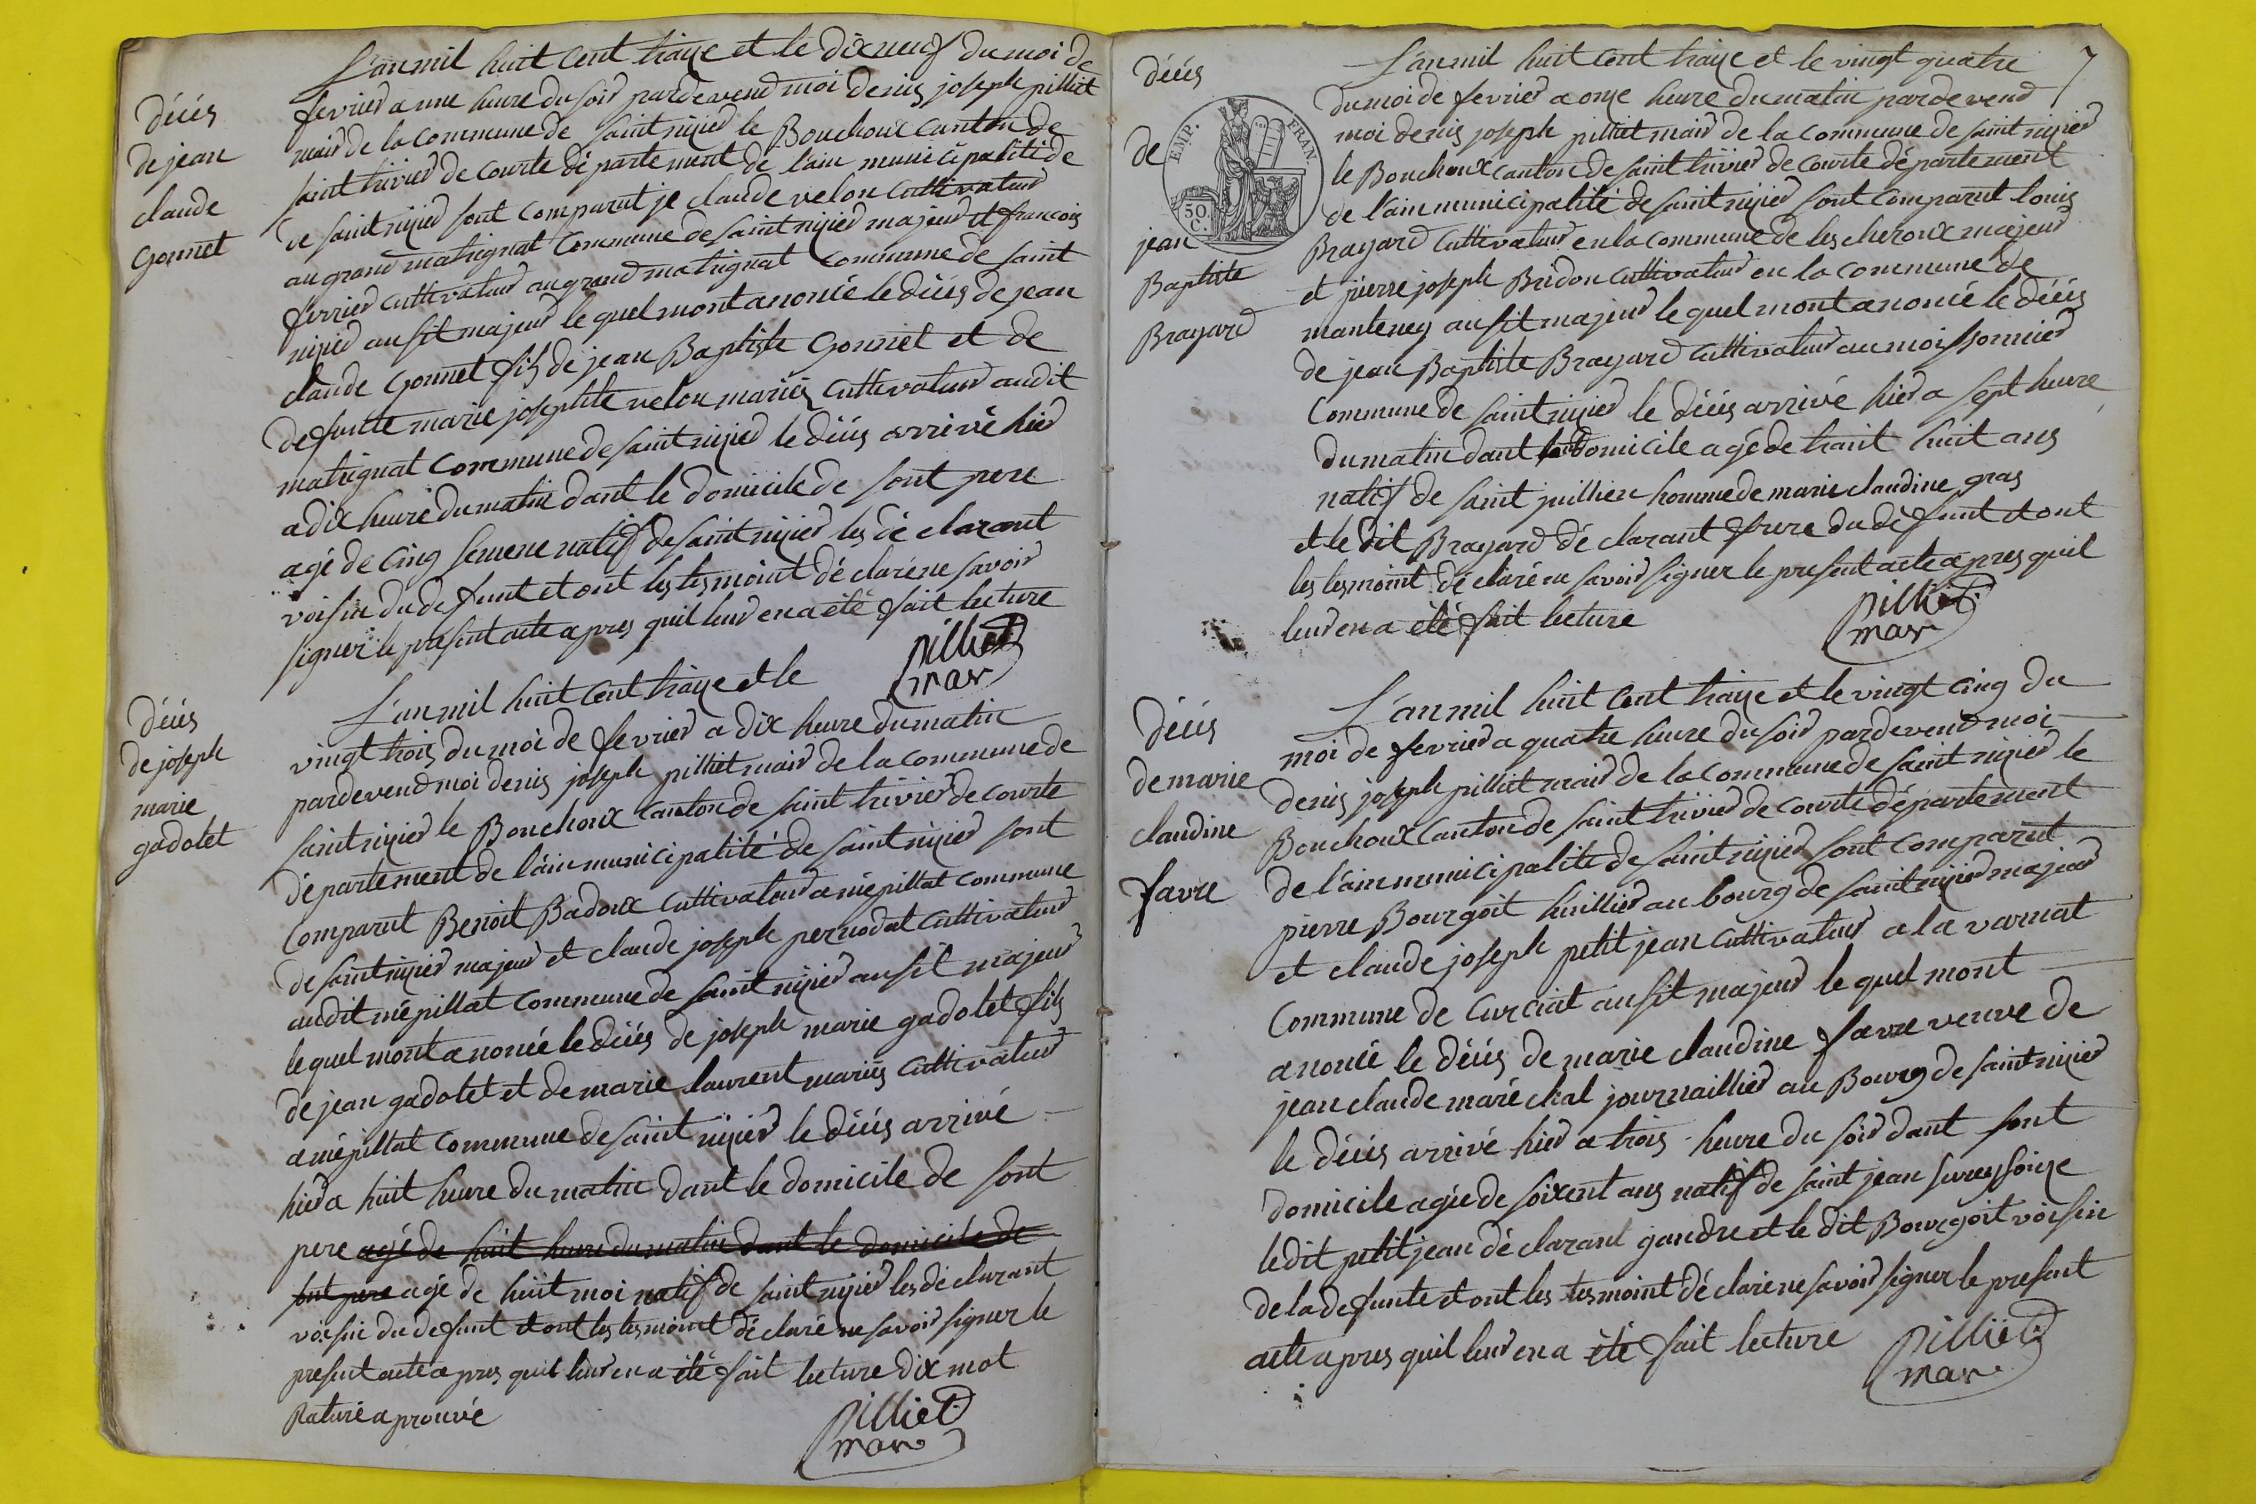 décés
de jean
claude
Gonnet
L'an mil huit cent traize et le dix neuf du moi de
fevrier a une heure du soir pardevend moi denis joseph pilliet
mair de la commune de saint nizier le Bouchoux canton de
saint trivier de courte département de l'ain municipalité de
de saint nizier sont comparut je claude velon cultivateur
au grand matrignat commune de saint nizier majeur et francois
ferrier cultivateur au grand matrignat commune de saint
nizier ausit majeur le quel mont anoncé le décés de jean
claude Gonnet fils de jean Baptiste Gonnet et de
defunte marie josephte velon mariés cultivateur audit
matrignat commune de saint nizier le décés arrivé hier
a dix heure du matin dant le domicile de sont pere
agé de cinq semene natif de saint nizier les dé clarant
voisin du defunt et ont les tesmoint déclaré ne savoir
signer le present acte apres quil leur en a été fait lecture
pilliet
mair
décés
de joseph
marie
gadolet
L'an mil huit cent traize et le
vingt trois du moi de fevrier a dix heure du matin
pardevend moi denis joseph pilliet mair de la commune de
saint nizier le Bouchoux canton de saint trivier de courte
département de l'ain municipalité de saint nizier sont
comparut Benoit Badoux cultivateur a mépillat commune
de saint nizier majeur et claude joseph pernodat cultivateur
audit mépillat commune de saint nizier ausit majeur
le quel mont anoncé le décés de joseph marie gadolet fils
de jean gadolet et de marie laurent mariés cultivateur
a mépillat commune de saint nizier le décés arrivé
hier a huit heure du matin dant le domicile de sont
pere agé de huit heure du matin dant le domicile de
sont pere agé de huit moi natif de saint nizier les dé clarant
voisin du defunt et ont les tesmoint déclaré ne savoir signer le
present acte apres quil leur en a été fait lecture dix mot
Raturé aprouvé
pilliet
mair
7
décés
de
jean
Baptiste
Brayard
EMP. FRAN.
50.
C.
L'an mil huit cent traize et le vingt quatre
du moi de fevrier a onze heure du matin pardevend
moi denis joseph pilliet mair de la commune de saint nizier
le Bouchoux canton de saint trivier de courte département
de l'ain municipalité de saint nizier sont comparut louis
Brayard cultivateur en la commune de lescheroux majeur
et pierre joseph Bridon cultivateur en la commune de
manteney ausit majeur le quel mont anoncé le décés
de jean Baptiste Brayard cultivateur au moissonnier
commune de saint nizier le décés arrivé hier a sept heure
du matin dant sont domicile agé de trant huit ans
natif de saint juillien homme de marie claudine gras
et le dit Brayard dé clarant frere du defunt et ont
les tesmoint déclaré ne savoir signer le present acte apres quil
leur en a été fait lecture
pilliet
mair
décés
de marie
claudine
favre
L'an mil huit cent traize et le vingt cinq du
moi de fevrier a quatre heure du soir pardevend moi
denis joseph pilliet mair de la commune de saint nizier le
Bouchoux canton de saint trivier de courte département
de l'ain municipalité de saint nizier sont comparut
pierre Bourgoit huillier au bourg de saint nizier majeur
et claude joseph petit jean cultivateur a la varnat
commune de Curciat ausit majeur le quel mont
anoncé le décés de marie claudine favre veuve de
jean claude maréchal journaillier au Bourg de saint nizier
le décés arrivé hier a trois heure du soir dant sont
domicile agée de soixent ans natif de saint jean sureyssoize
le dit petit jean dé clarant gandre et le dit Bourgoit voisin
de la defunte et ont les tesmoint déclaré ne savoir signer le present
acte apres quil leur en a été fait lecture
pilliet
mair